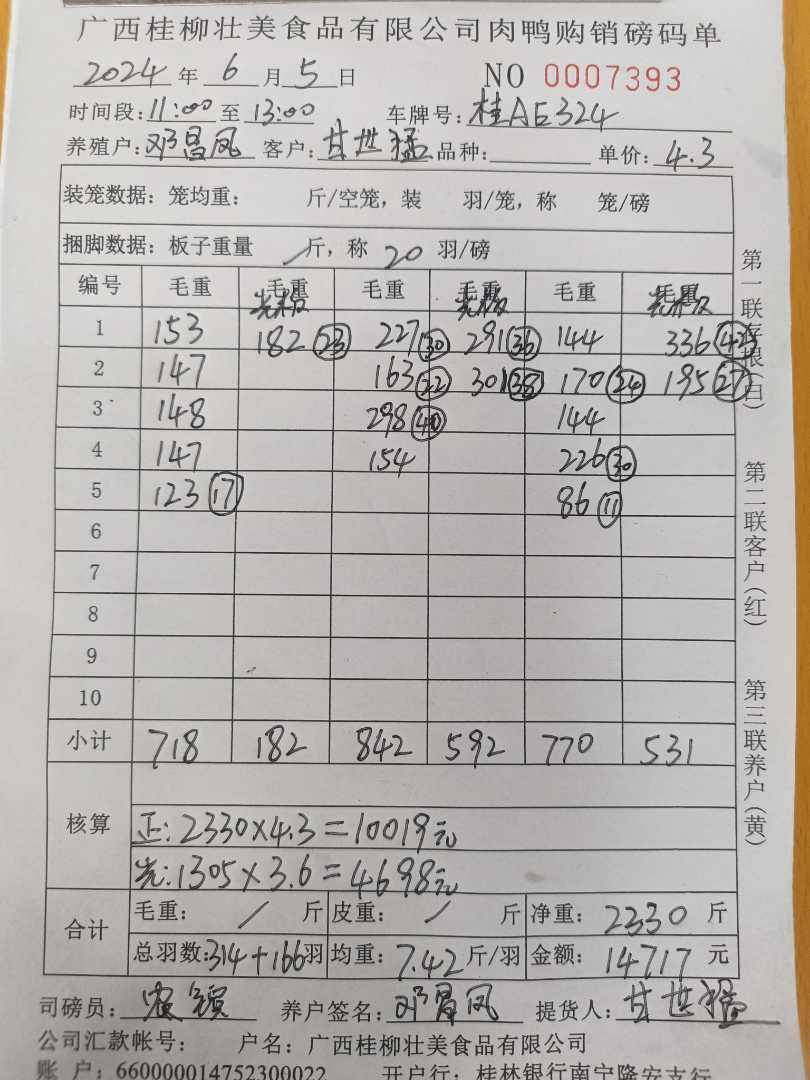 广西桂柳壮美食品有限公司肉鸭购销磅码单
2024 年 6 月 5 日 NO 0007393
时间段: 11:00 至 13:00 车牌号: 桂AE324
养殖户: 邓昌凤 客户: 甘世猛 品种: 单价: 4.3
装笼数据: 笼均重: 斤/空笼, 装 羽/笼, 称 笼/磅
捆脚数据: 板子重量 / 斤, 称 20 羽/磅
编号 毛重 毛重 毛重 毛重 毛重 毛重
1 153 182 (23) 227 (30) 291 (36) 144 336 (42)
2 147 163 (22) 301 (38) 170 (24) 195 (27)
3 148 298 (40) 144
4 147 154 226 (30)
5 123 (17) 86 (11)
6
7
8
9
10
小计 718 182 842 592 770 531
核算
正: 2330×4.3=10019元
光: 1305×3.6=4698元
合计
毛重: / 斤 皮重: / 斤 净重: 2330 斤
总羽数: 314+166 羽 均重: 7.42 斤/羽 金额: 14717 元
司磅员: 养户签名: 邓昌凤 提货人: 甘世猛
公司汇款帐号: 户名: 广西桂柳壮美食品有限公司
账户: 660000014752300022 开户行: 桂林银行南宁隆安支行
第一联存根(白)
第二联客户(红)
第三联养户(黄)